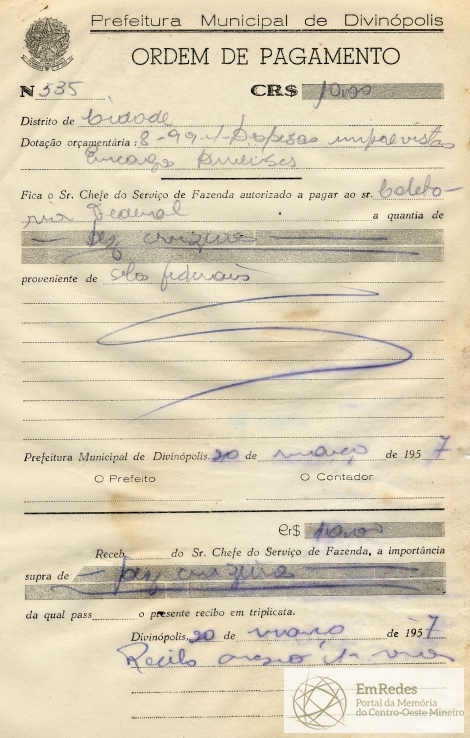 Prefeitura Municipal de Divinópolis
ORDEM DE PAGAMENTO
N 535 CR$ 10,00
Distrito de Cidade
Dotação orçamentária: 8-99-1-Despesas imprevistas
Encargos
Fica o Sr. Chefe do Serviço de Fazenda autorizado a pagar ao sr. Coleto-
ria Federal a quantia de
— dez cruzeiros —
proveniente de selos federais
Prefeitura Municipal de Divinópolis, 20 de março de 1957
O Prefeito O Contador
Cr$ 10,00
Receb do Sr. Chefe do Serviço de Fazenda, a importância
supra de — dez cruzeiros
da qual pass o presente recibo em triplicata.
Divinópolis, 20 de março de 1957
EmRedes
Portal da Memória
do Centro-Oeste Mineiro